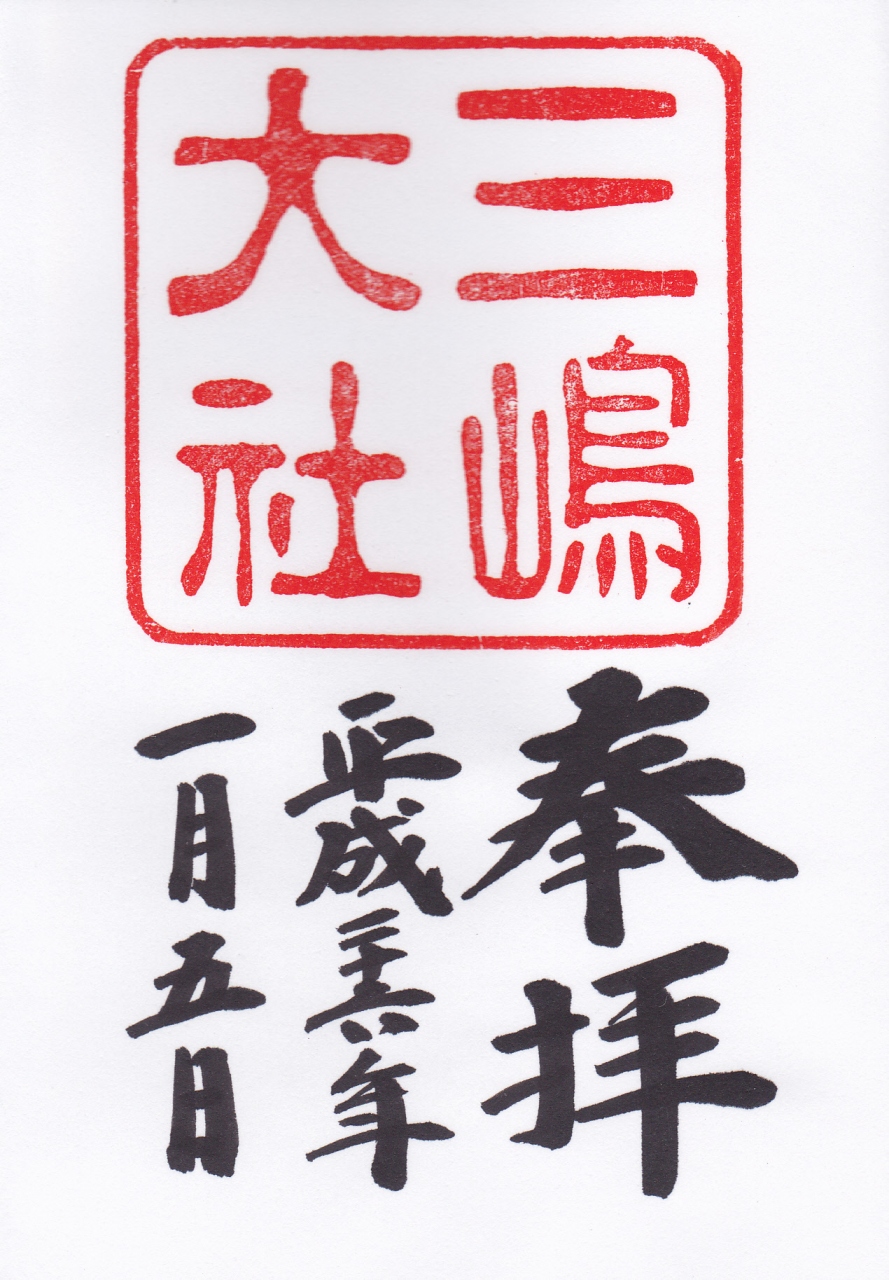 三嶋
大社
奉拝
平成二十六年
一月五日